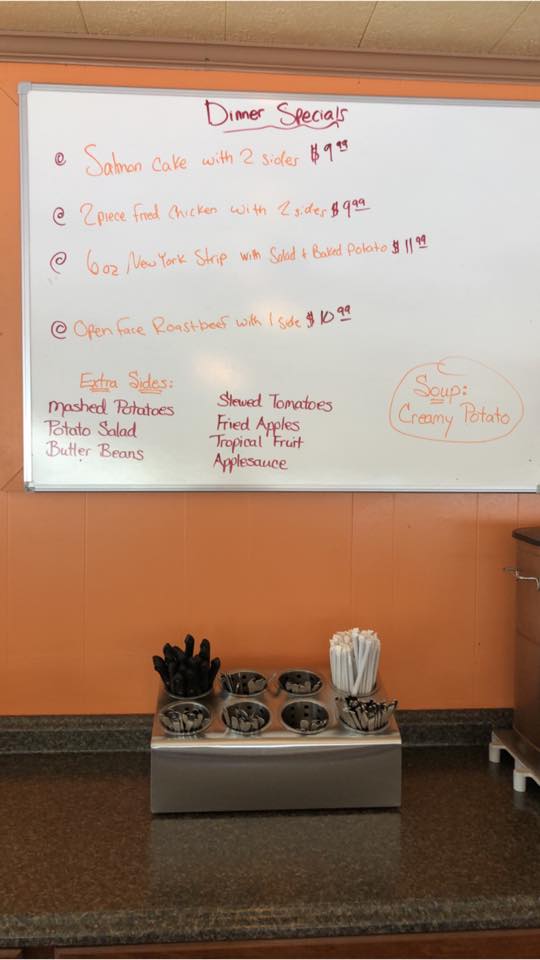 Dinner Specials
@ Salmon Cake with 2 sides $9.99
@ 2 piece fried chicken with 2 sides $9.99
@ 6oz New York Strip with Salad + Baked Potato $11.99
@ Open Face Roastbeef with 1 side $10.99
Extra Sides:
mashed Potatoes
Potato Salad
Butter Beans
Stewed Tomatoes
Fried Apples
Tropical Fruit
Applesauce
Soup:
Creamy Potato